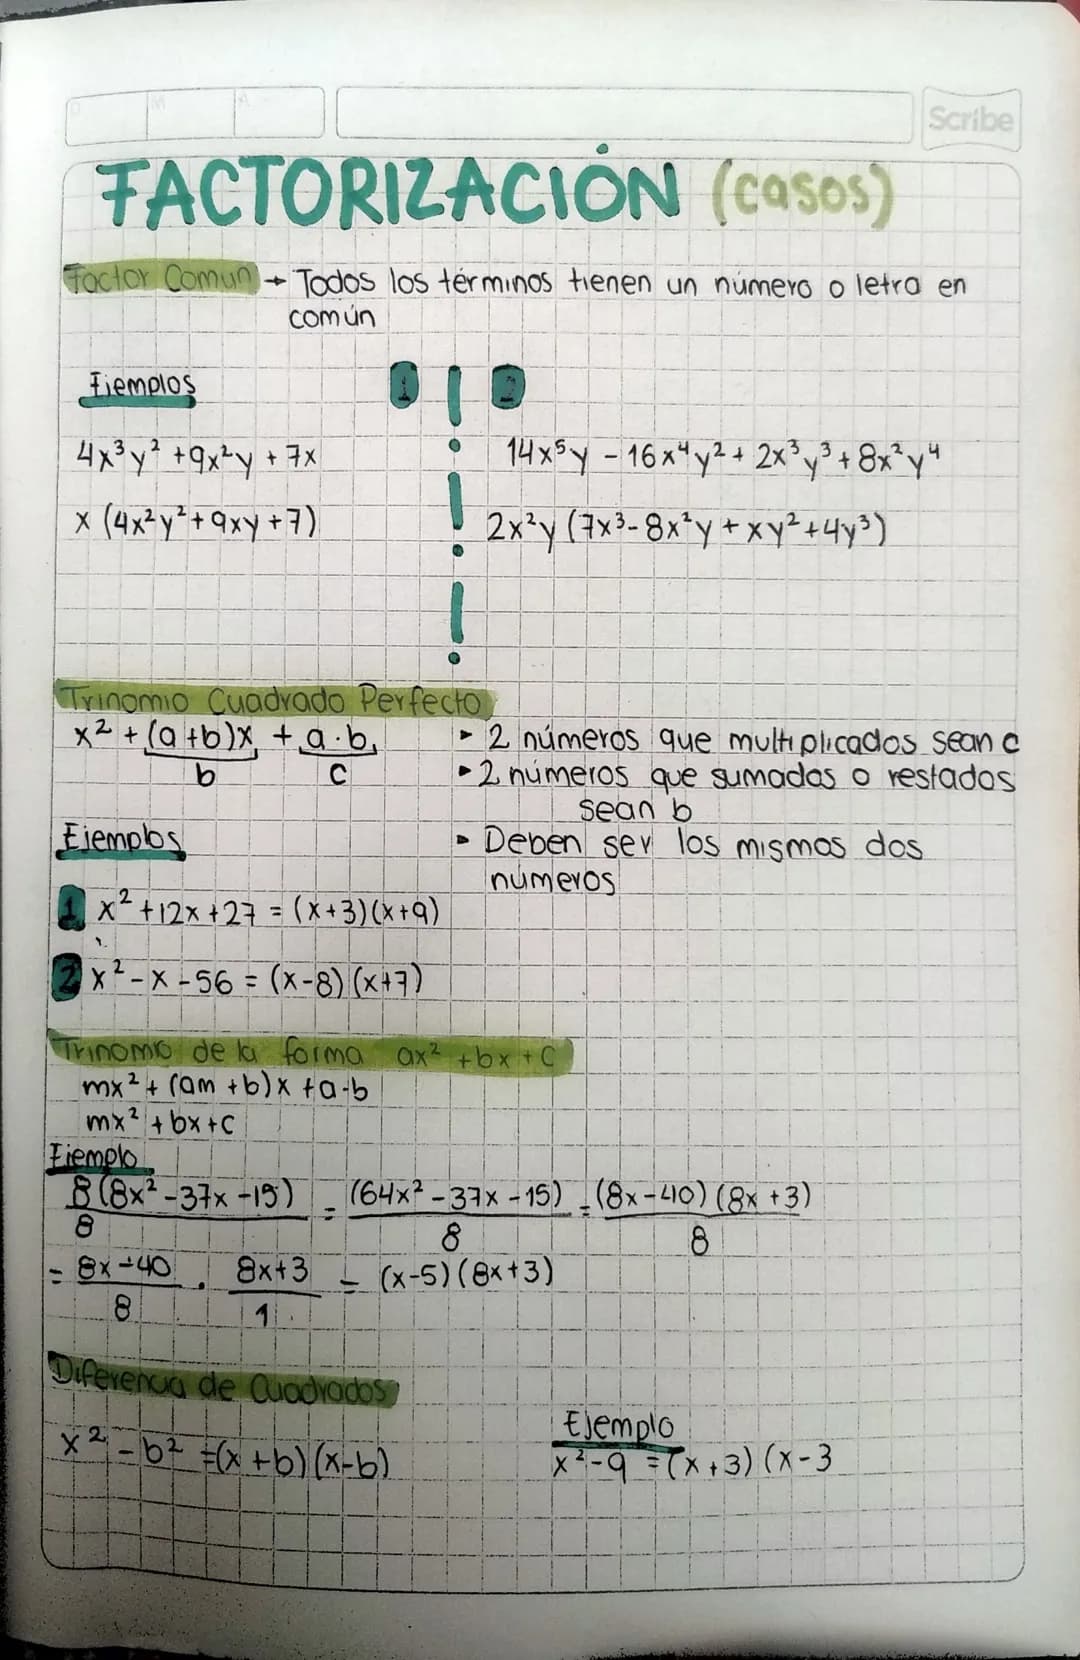 D M A
Scribe
FACTORIZACIÓN (casos)
Factor Comun → Todos los términos tienen un número o letra en
común
Ejemplos 1 2
4x³y² + 9x²y + 7x
x (4x²y² + 9xy + 7)
14x⁵y - 16x⁴y² + 2x³y³ + 8x²y⁴
2x²y (7x³ - 8x²y + xy² + 4y³)
Trinomio Cuadrado Perfecto
x² + (a+b)x + a·b
b c
▸ 2 números que multiplicados sean c
▸ 2 números que sumados o restados
sean b
▸ Deben ser los mismos dos
números
Ejemplos
1 x² + 12x + 27 = (x+3)(x+9)
2 x² - x - 56 = (x-8)(x+7)
Trinomio de la forma ax² + bx + c
mx² + (am + b)x + a·b
mx² + bx + c
Ejemplo
8(8x² - 37x - 15) = (64x² - 37x - 15) = (8x - 40)(8x + 3)
8 8 8
= 8x - 40 · 8x + 3 = (x-5)(8x+3)
8 1
Diferencia de Cuadrados
x² - b² = (x + b)(x - b)
Ejemplo
x² - 9 = (x + 3)(x - 3